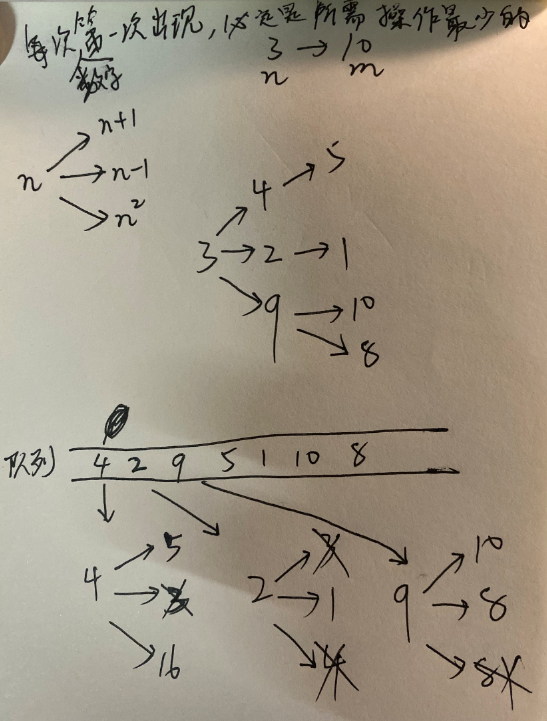 每次第一次出现,必定是所需操作最少的
数字
3 → 10
n m
n → n+1
n → n-1
n → n²
3 → 4 → 5
3 → 2 → 1
3 → 9 → 10
9 → 8
队列 4 2 9 5 1 10 8
4 → 5
4 → 3
4 → 16
2 → 3
2 → 1
2 → 4
9 → 10
9 → 8
9 → 81